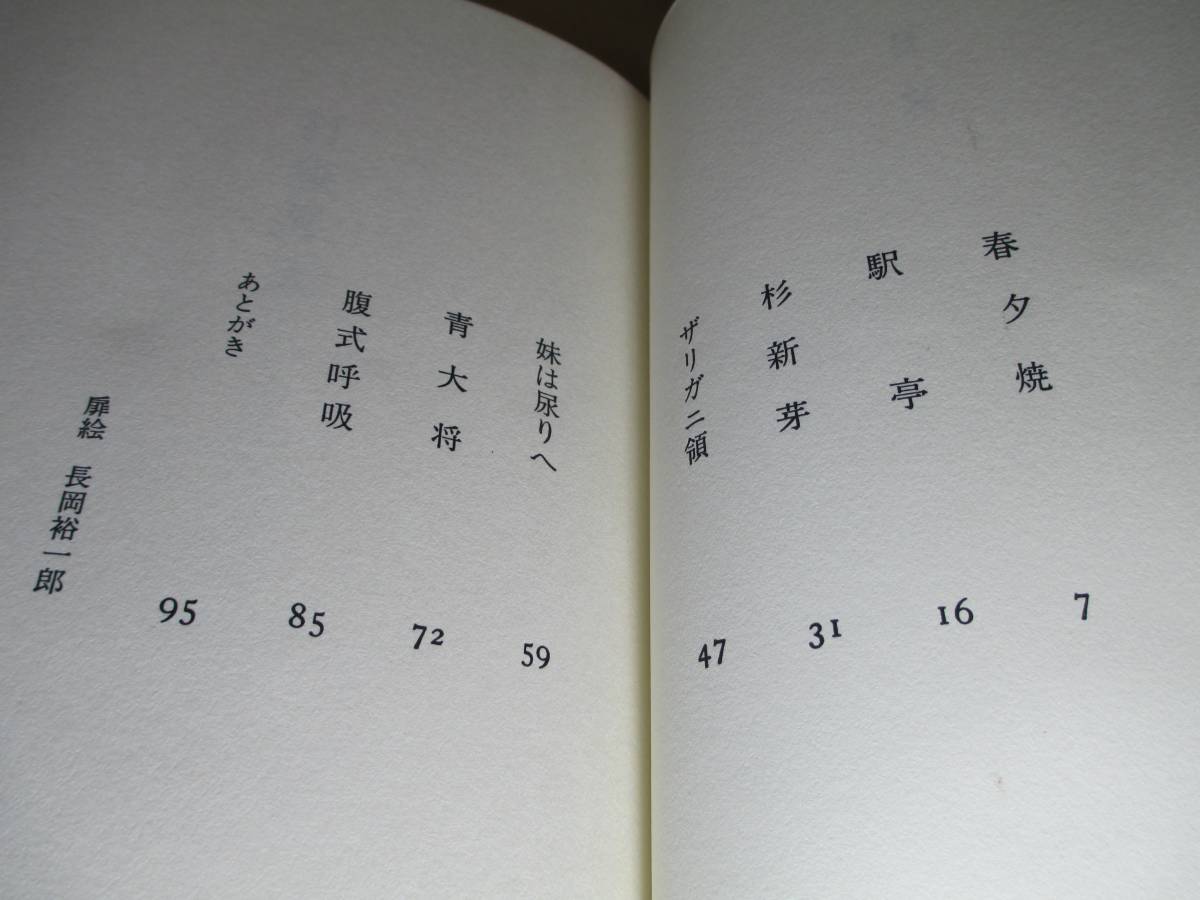 春夕焼 7
駅亭 16
杉新芽 31
ザリガニ領 47
妹は尿りへ 59
青大将 72
腹式呼吸 85
あとがき 95
扉絵 長岡裕一郎